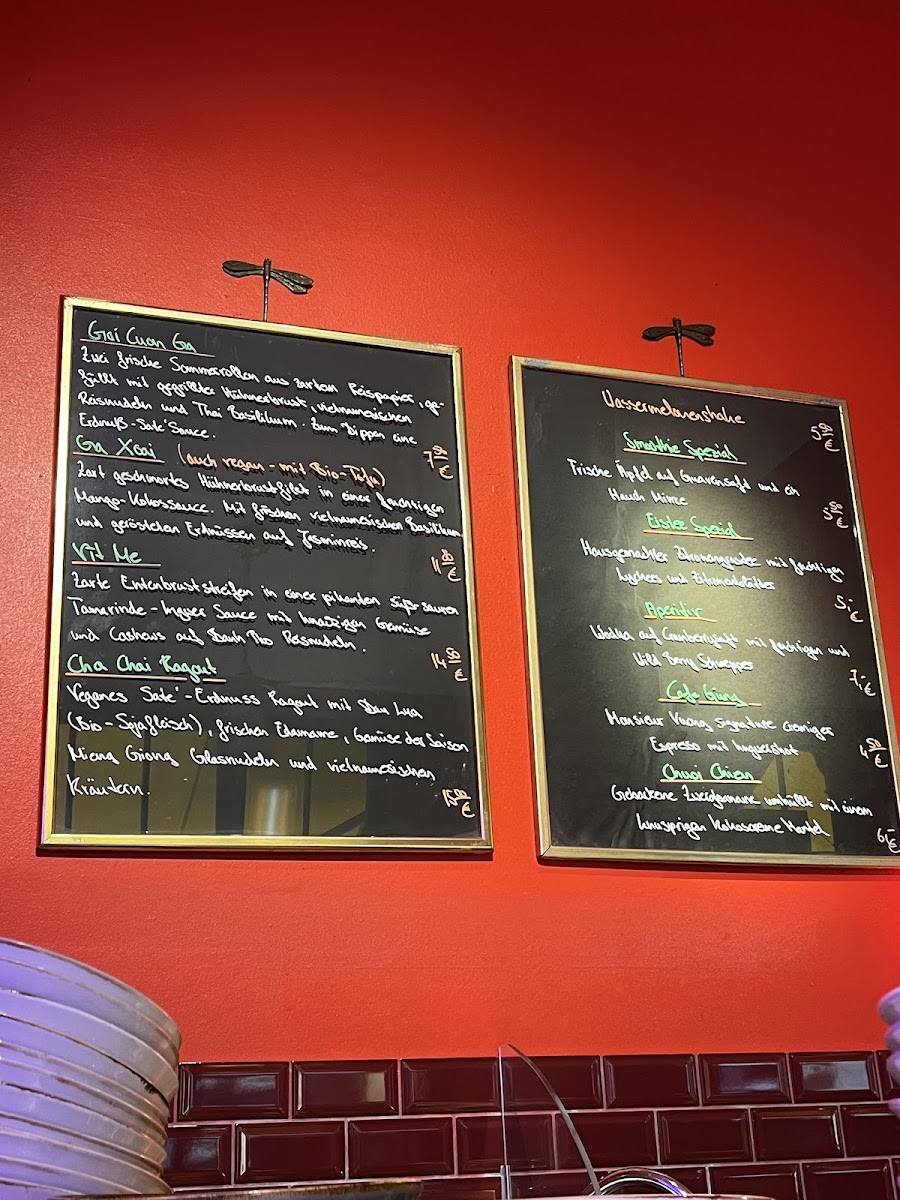 Goi Cuon Ga
Zwei frische Sommerrollen aus zartem Reispapier, ge-
füllt mit gegrillter Hühnerbrust, vietnamesischen
Reisnudeln und Thai Basilikum. Zum Dippen eine
Erdnuß-Saté Sauce.
7,50 €
Ga Xoai (auch vegan - mit Bio-Tofu)
Zart geschmortes Hühnerbrustfilet in einer fruchtigen
Mango-Kokossauce. Mit frischen vietnamesischen Basilikum
und gerösteten Erdnüssen auf Jasminreis.
11,80 €
Vit Me
Zarte Entenbruststreifen in einer pikanten süß-sauren
Tamarinde-Ingwer Sauce mit knackigen Gemüse
und Cashews auf Banh Pho Reisnudeln.
14,50 €
Cha Chai Ragout
Veganes Saté-Erdnuss Ragout mit Dau Lua
(Bio-Sojafleisch), frischen Edamame, Gemüse der Saison
Mieng Giong Glasnudeln und vietnamesischen
Kräutern.
13,50 €
Wassermelonenshake
5,50 €
Smoothie Spezial
Frische Äpfel auf Guavensaft und ein
Hauch Minze
5,50 €
Eistee Spezial
Hausgemachter Zitronengrastee mit fruchtigen
Lychees und Zitronenblätter
5,- €
Aperitif
Wodka auf Cranberrysaft mit fruchtigen und
Wild Berry Schweppes
7,- €
Cafe Gung
Monsieur Vuong signature cremiger
Espresso mit Ingwershot
4,50 €
Chuoi Chien
Gebackene Zwergbanane umhüllt mit einem
knusprigen Kokoscreme Mantel
6,- €